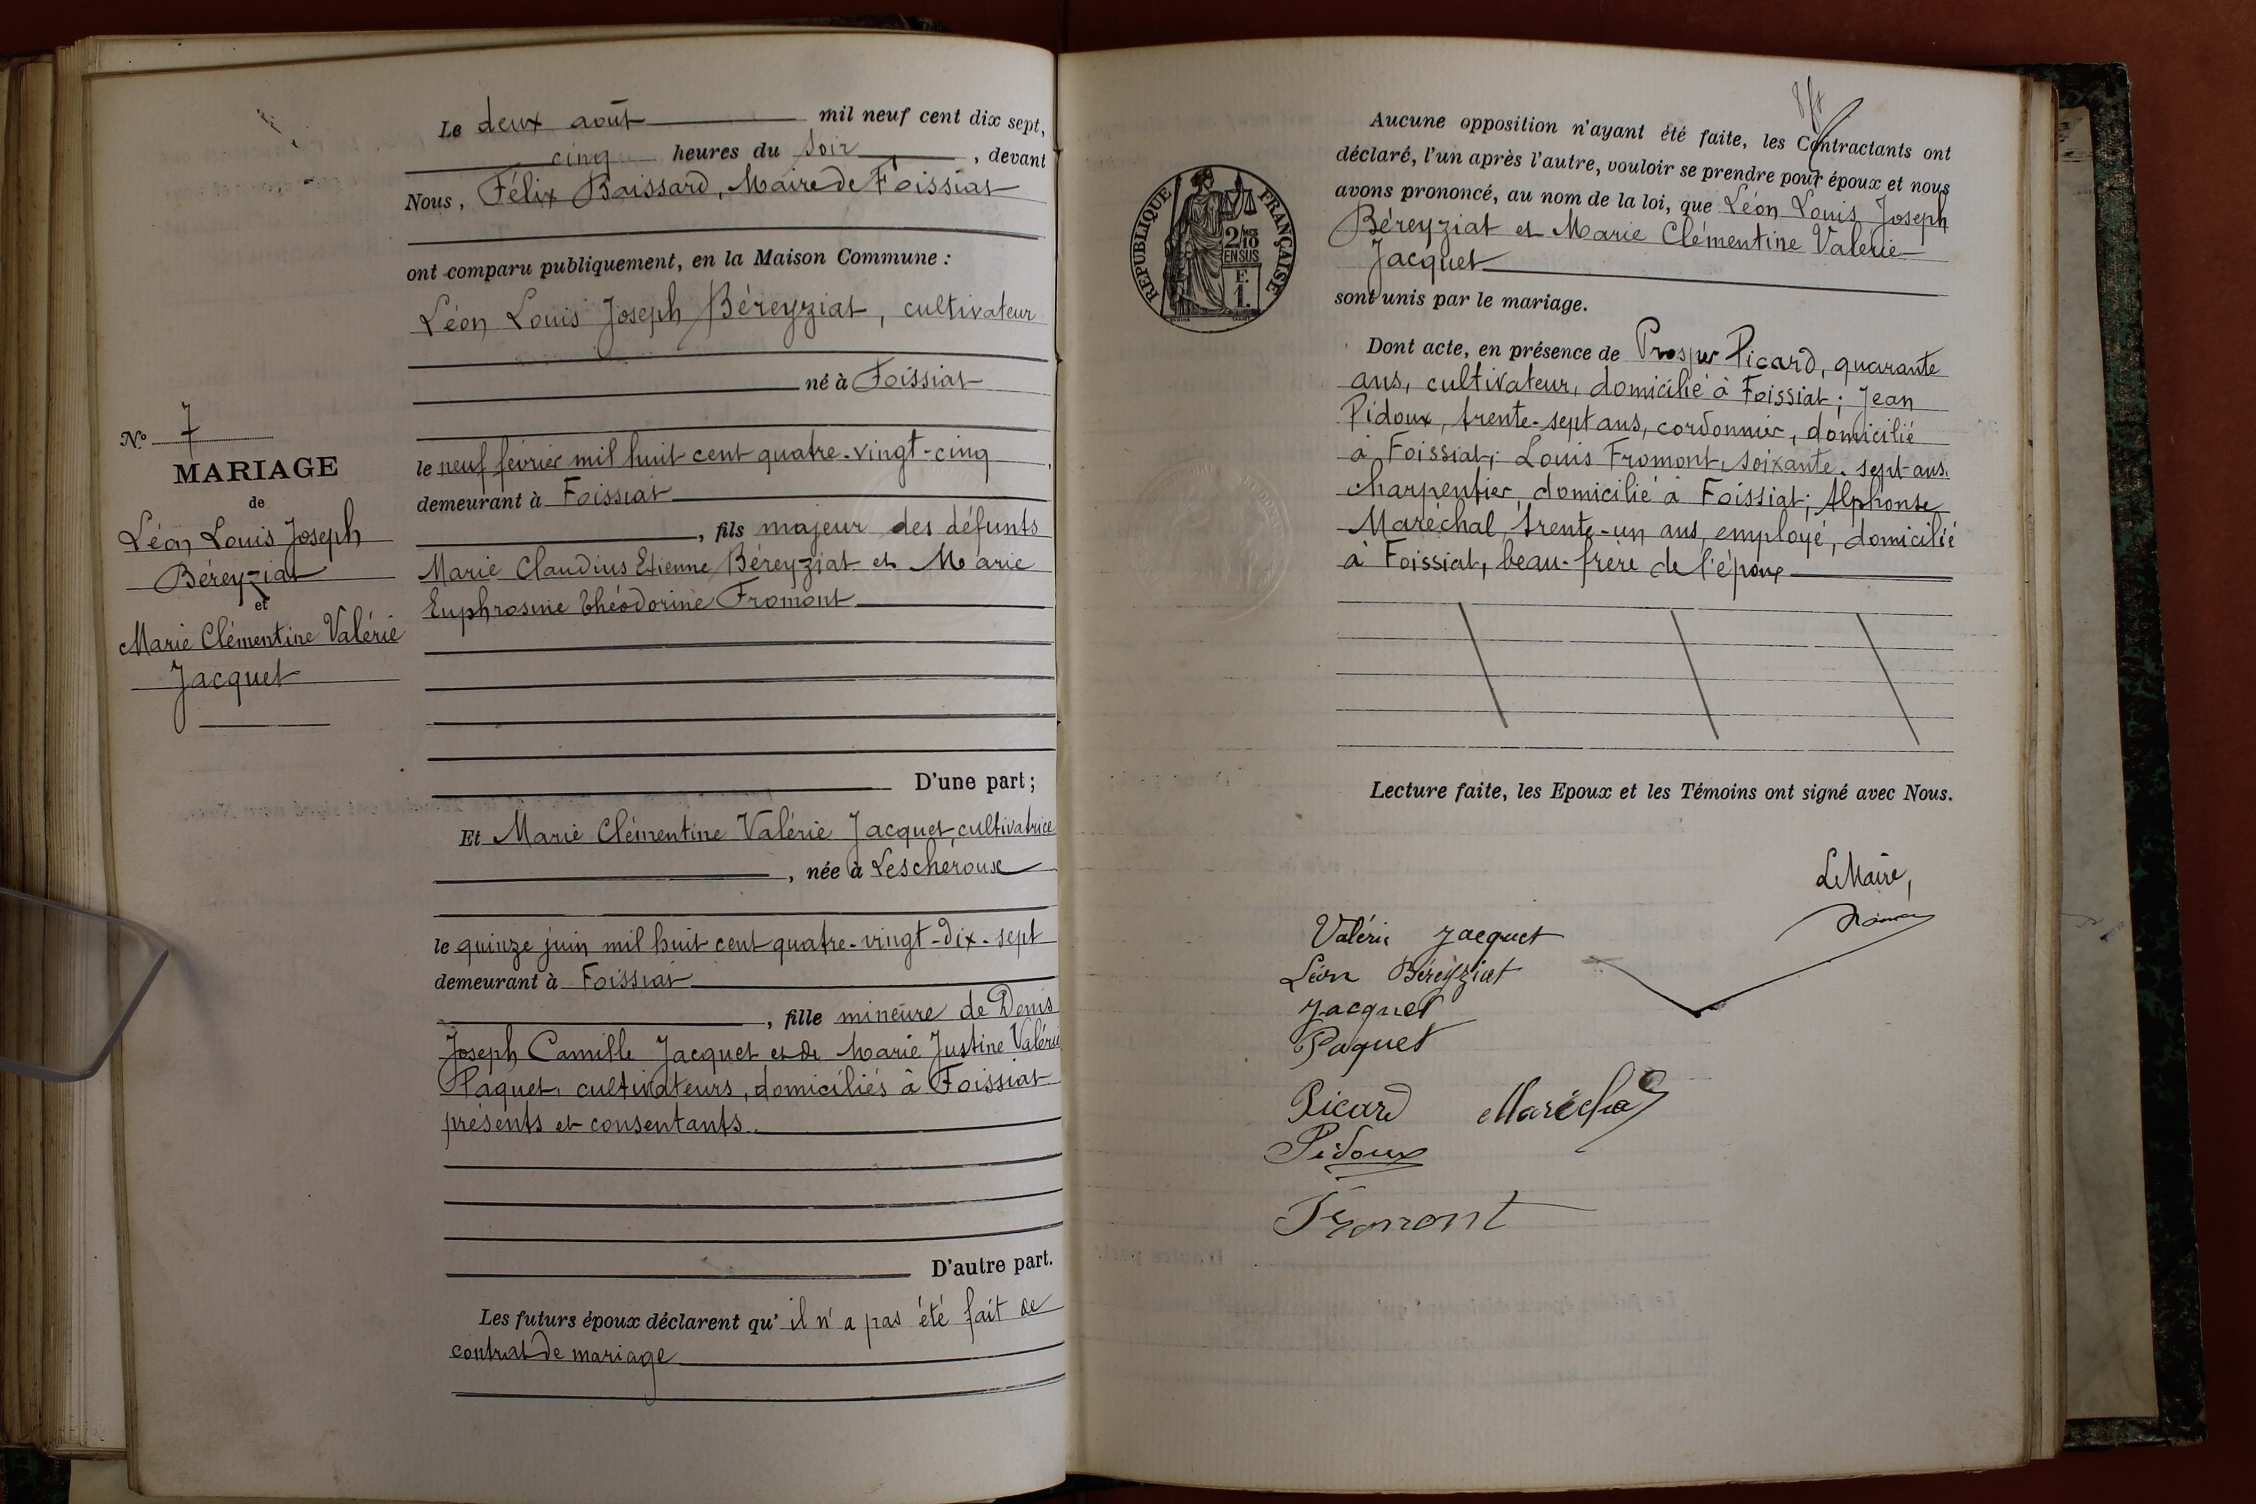 Le deux août mil neuf cent dix sept,
cinq heures du soir, devant
Nous, Félix Boissard, Maire de Foissiat
ont comparu publiquement, en la Maison Commune :
Léon Louis Joseph Béreyziat, cultivateur
né à Foissiat
le neuf février mil huit cent quatre-vingt-cinq,
demeurant à Foissiat
, fils majeur des défunts
Marie Claudius Etienne Béreyziat et Marie
Euphrosine Théodorine Fromont
D'une part ;
Et Marie Clémentine Valérie Jacquet, cultivatrice
, née à Lescheroux
le quinze juin mil huit cent quatre-vingt-dix-sept
demeurant à Foissiat
, fille mineure de Denis
Joseph Camille Jacquet et de Marie Justine Valérie
Paquet, cultivateurs, domiciliés à Foissiat
présents et consentants.
D'autre part.
Les futurs époux déclarent qu'il n'a pas été fait de
contrat de mariage
N.º 7
MARIAGE
de
Léon Louis Joseph
Béreyziat
et
Marie Clémentine Valérie
Jacquet
Aucune opposition n'ayant été faite, les Contractants ont
déclaré, l'un après l'autre, vouloir se prendre pour époux et nous
avons prononcé, au nom de la loi, que Léon Louis Joseph
Béreyziat et Marie Clémentine Valérie
Jacquet
sont unis par le mariage.
REPUBLIQUE FRANÇAISE
2/10
EN SUS
F.
1.
Dont acte, en présence de Prosper Picard, quarante
ans, cultivateur, domicilié à Foissiat ; Jean
Pidoux, trente-sept ans, cordonnier, domicilié
à Foissiat ; Louis Fromont, soixante-sept ans,
charpentier, domicilié à Foissiat ; Alphonse
Maréchal, trente-un ans, employé, domicilié
à Foissiat, beau-frère de l'époux
Lecture faite, les Epoux et les Témoins ont signé avec Nous.
Le Maire,
Valérie Jacquet
Léon Béreyziat
Jacquet
Paquet
Picard Maréchal
Pidoux
Fromont